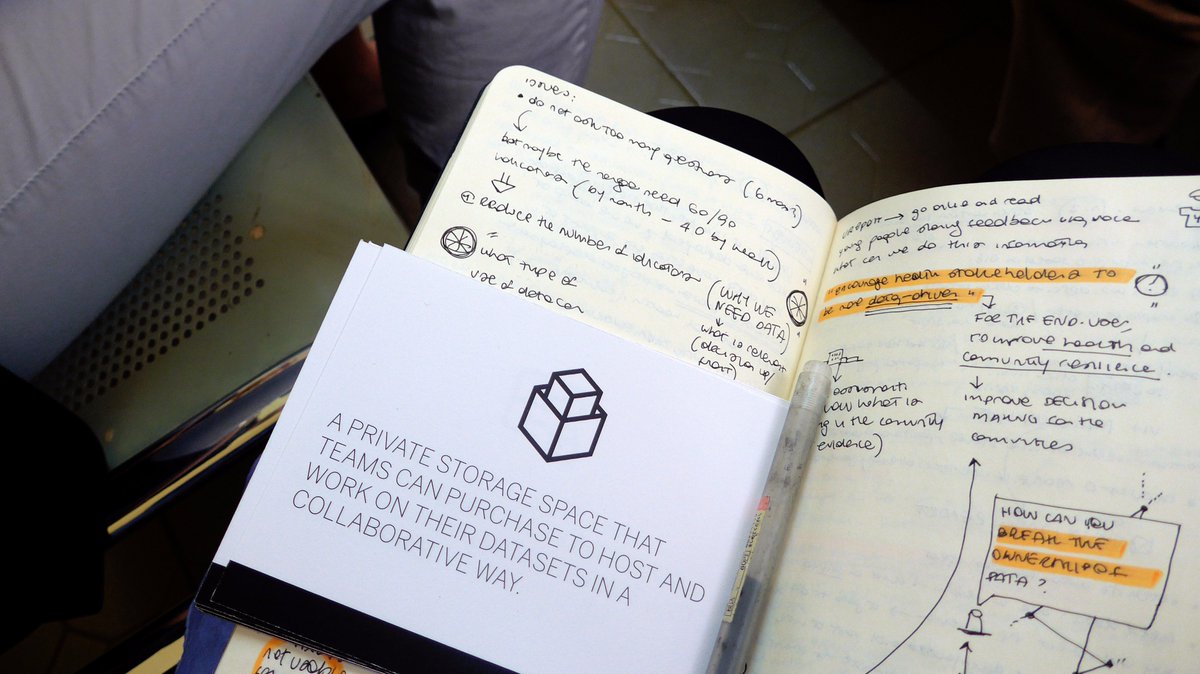 issues:
• do not ask too many questions (6 max?)
but maybe the
need 60/90
indicators (by month – 40 by week)
① REDUCE the number of indicators
(WHY WE
NEED DATA)
= what type of
use of data can
what is relevant
A PRIVATE STORAGE SPACE THAT
TEAMS CAN PURCHASE TO HOST AND
WORK ON THEIR DATASETS IN A
COLLABORATIVE WAY.
not usable
UREPORT → go and read
young people sharing feedback using voice
what can we do this information
"encourage health stakeholders to
be more data-driven"
FOR THE END-USER,
to improve health and
community resilience.
know what is
g in the community
evidence)
IMPROVE DECISION
MAKING for the
communities
HOW CAN YOU
BREAK THE
OWNERSHIP OF
DATA?